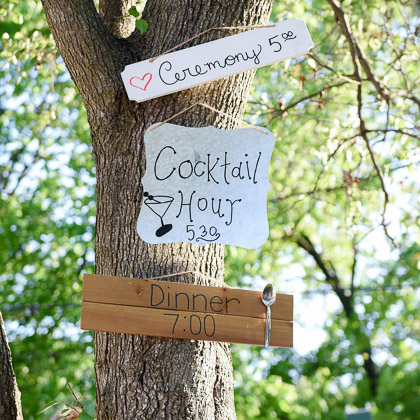 Ceremony 5:00
Cocktail
Hour
5:30
Dinner
7:00